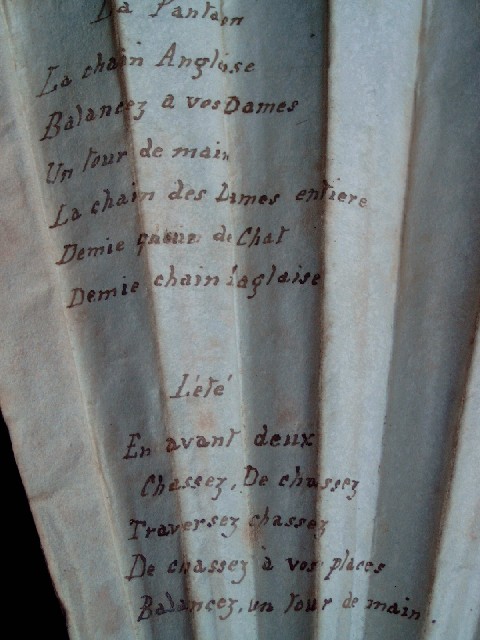 La Pantaon
La chain Anglaise
Balancez a vos Dames
Un tour de main
La chain des Dames entiere
Demie queue de Chat
Demie chain l'aglaise
L'été
En avant deux
Chassez, De chassez
Traversez chassez
De chassez à vos places
Balancez, un tour de main.